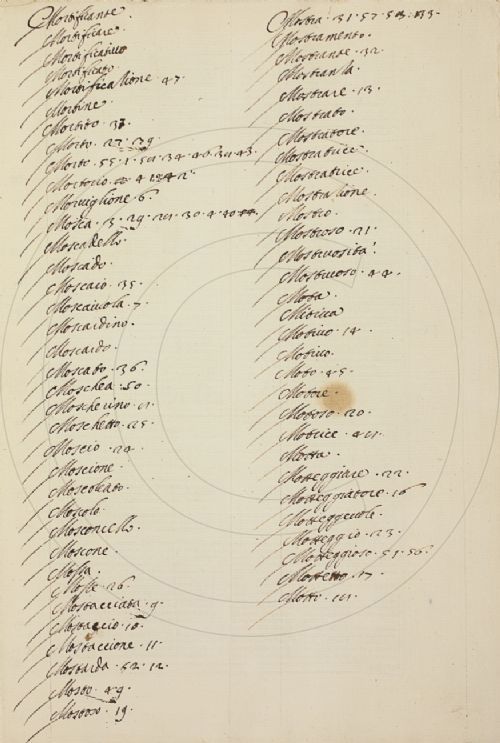 Mortificante.
Mortificare.
Mortificativo
Mortificato.
Mortificatione. 47.
Mortine.
Mortito. 38.
Morto. 27. 29.
Morte. 55. 1. 50. 34. 40. 30. 43.
Mortorio.
Moruiglione. 6.
Mosca. 3. 29. 30. 4.
Moscadello.
Moscado.
Moscaio. 35.
Moscaiuola. 7.
Moscardino.
Moscardo.
Moscato. 36.
Moschea. 50.
Moscherino. 11.
Moschetto. 25.
Moscio. 24.
Moscione.
Moscoleato.
Moscolo.
Mosconcello.
Moscone.
Mossa.
Mosse. 26.
Mostacciata. 9.
Mostaccio. 10.
Mostaccione. 11.
Mostarda. 52. 12.
Mosto. 49.
Mostoso. 19.
Mostra. 31. 57. 58.
Mostramento.
Mostrante. 32.
Mostranza.
Mostrare. 13.
Mostrato.
Mostratore.
Mostratrice.
Mostratrice.
Mostratione.
Mostro.
Mostroso. 21.
Mostruosità.
Mostruoso. 44.
Mota.
Motiva
Motivo. 14.
Motivo.
Moto. 45.
Motore.
Motoso. 20.
Motrice. 41.
Motta.
Motteggiare. 22.
Motteggiatore. 16
Motteggevole.
Motteggio. 23.
Motteggioso. 51. 56.
Mottetto. 17.
Motto.